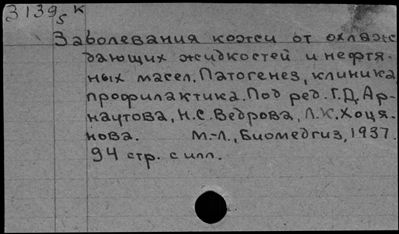 31395 К
Заболевания кожи от охлаж
дающих жидкостей и нефтя-
ных масел. Патогенез, клиника
профилактика. Под ред. Г.Д. Ар-
наутова, Н.С. Ведрова, Л.К. Хоця-
нова. М.-Л., Биомедгиз, 1937.
94 стр. с илл.